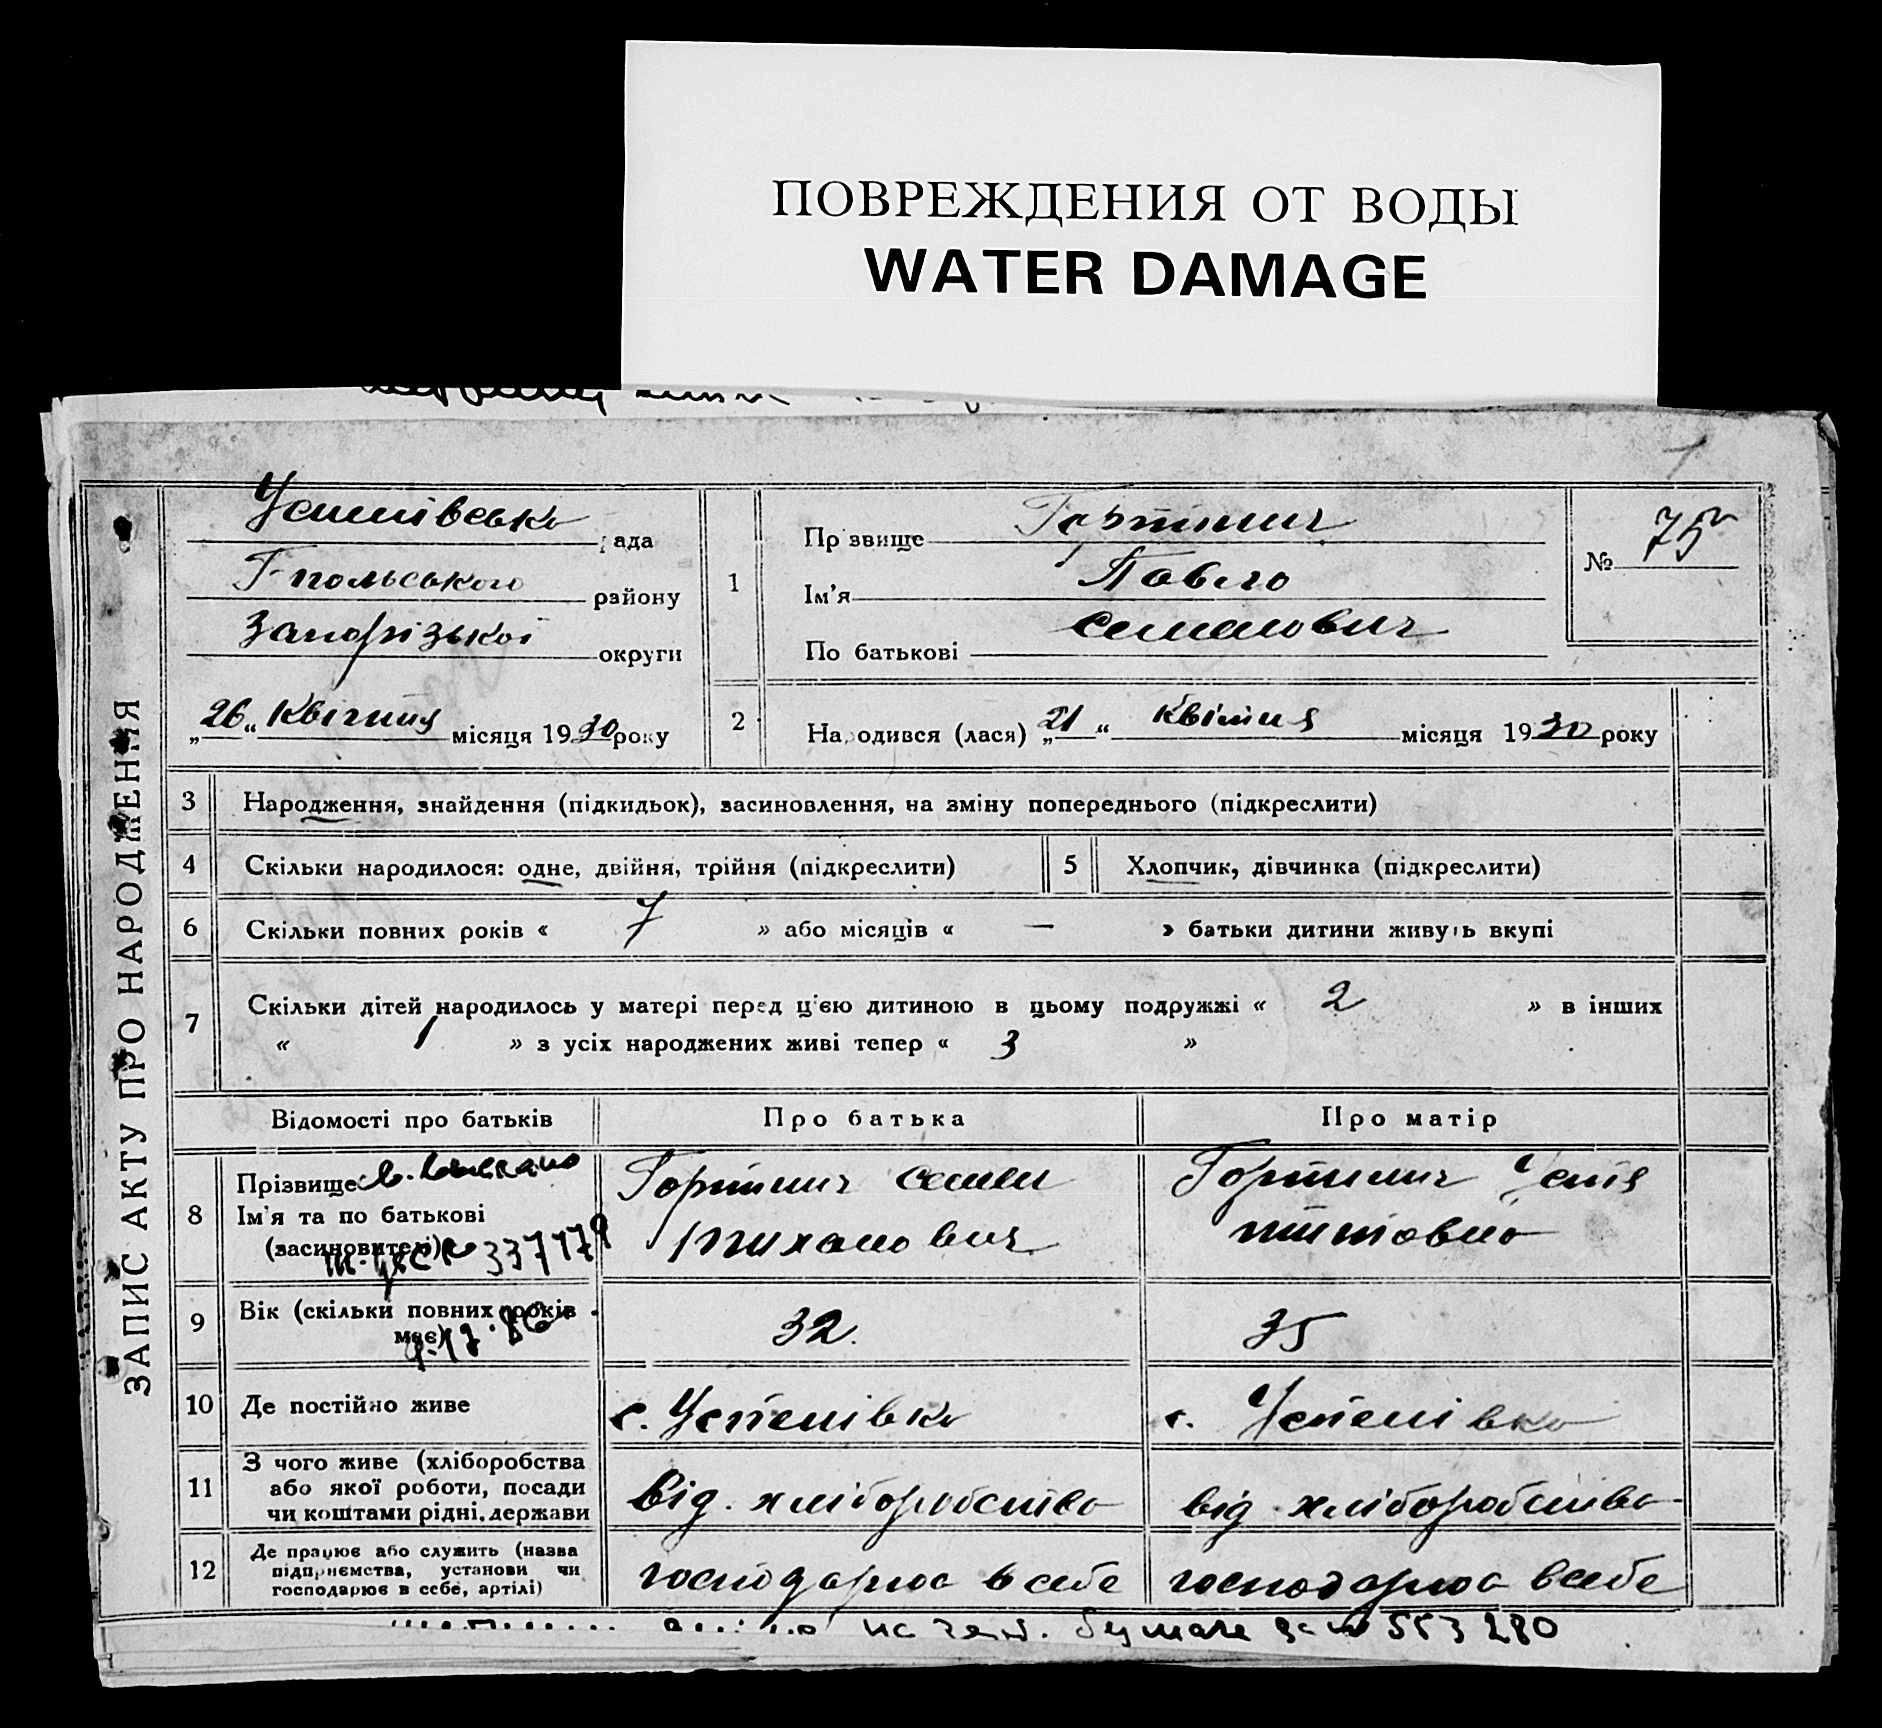 ПОВРЕЖДЕНИЯ ОТ ВОДЫ
WATER DAMAGE
ЗАПИС АКТУ ПРО НАРОДЖЕННЯ
Успенівська рада
Г-польського району
Запорізької округи
„26“ Квітня місяця 1930 року
1
Прізвище Гортинич
Ім'я Павло
По батькові Семенович
№ 75
2
Народився (лася) „21“ Квітня місяця 1930 року
3 Народження, знайдення (підкидьок), засиновлення, на зміну попереднього (підкреслити)
4 Скільки народилося: одне, двійня, трійня (підкреслити)
5 Хлопчик, дівчинка (підкреслити)
6 Скільки повних років « 7 » або місяців « — » батьки дитини живуть вкупі
7 Скільки дітей народилось у матері перед ц'єю дитиною в цьому подружжі « 2 » в інших
« 1 » з усіх народжених живі тепер « 3 »
Відомості про батьків Про батька Про матір
8 Прізвище
Ім'я та по батькові
(засиновителі)
337179
Гортинич Семен
Гортинич Устя
Титовна
9 Вік (скільки повних років має) 32. 35
10 Де постійно живе с. Успенівка с. Успенівка
11 З чого живе (хліборобства
або якої роботи, посади
чи коштами рідні, держави
від. хліборобства від хліборобства
12 Де працює або служить (назва
підприємства, установи чи
господарює в себе, артілі)
господарює в себе господарює в себе
553280